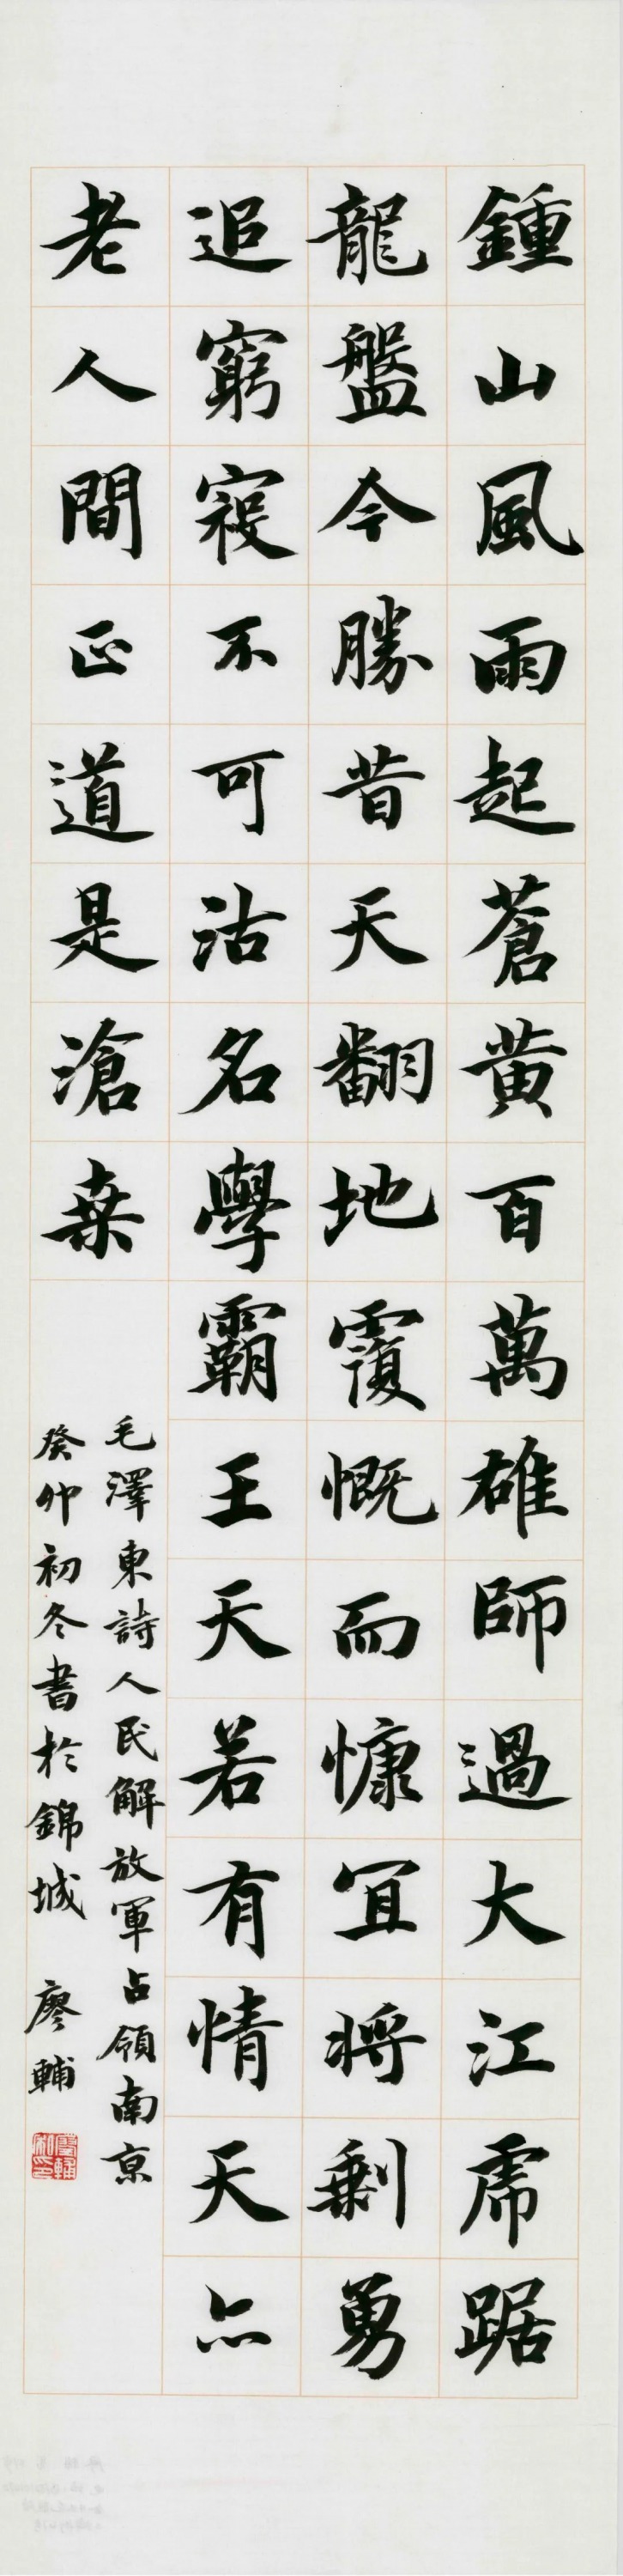 鍾山風雨起蒼黃百萬雄師過大江虎踞
龍盤今勝昔天翻地覆慨而慷宜將剩勇
追窮寇不可沽名學霸王天若有情天亦
老人間正道是滄桑
毛澤東詩人民解放軍占領南京
癸卯初冬書於錦城 廖輔